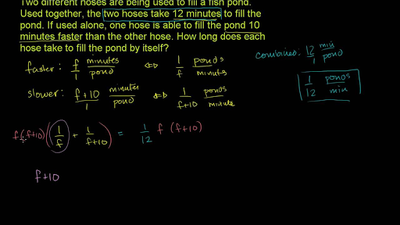 Two different hoses are being used to fill a fish pond.
Used together, the two hoses take 12 minutes to fill the
pond. If used alone, one hose is able to fill the pond 10
minutes faster than the other hose. How long does each
hose take to fill the pond by itself?
combined: 12/1 min/pond
faster: f/1 minutes/pond ⇔ 1/f ponds/minutes
1/12 ponds/min
slower: f+10/1 minutes/pond ⇔ 1/f+10 ponds/minute
f(f+10)(1/f + 1/f+10) = 1/12 f (f+10)
f+10